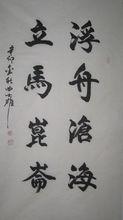 浮舟滄海
立馬崑崙